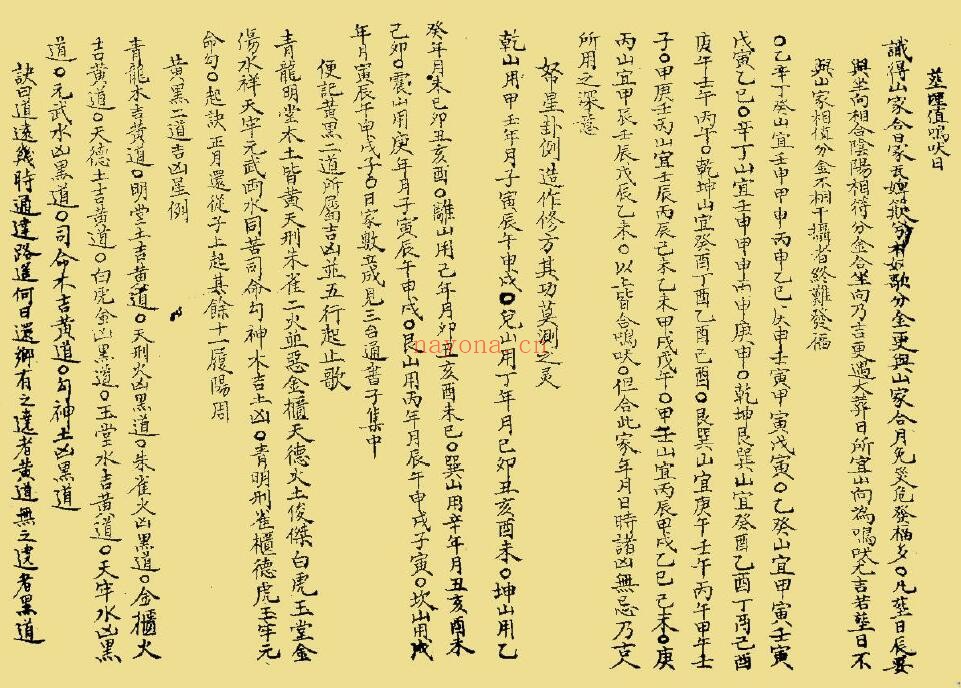 塟埋值鳴吠日
識得山家合日家
分金更與山家合月免災危發福多○凡塟日辰要
與坐向相合陰陽相符分金合坐向乃吉更遇大葬日所宜山向為鳴吠尤吉若塟日不
與山家相值分金不相干攝者終難發福
○乙辛丁癸山宜壬申甲申丙申乙巳庚申壬寅甲寅戊寅○乙癸山宜甲寅壬寅
戊寅乙巳○辛丁山宜壬申甲申丙申庚申○乾坤艮巽山宜癸酉乙酉丁酉己酉
庚午壬午丙午○乾坤山宜癸酉丁酉乙酉己酉○艮巽山宜庚午壬午丙午甲午壬
子○甲庚壬丙山宜壬辰丙辰己未乙未甲戌戊午○甲壬山宜丙辰甲戌乙巳己未○庚
丙山宜甲辰壬辰戊辰乙未○以上皆合鳴吠○但合此家年月日時諸凶無忌乃古人
所用之深意
弩星卦例造作修方其功莫測之灵
乾山用甲壬年月子寅辰午申戌○兌山用丁年月巳卯丑亥酉未○坤山用乙
癸年月未巳卯丑亥酉○離山用己年月卯丑亥酉未巳○巽山用辛年月丑亥酉未
己卯○震山用庚年月子寅辰午申戌○艮山用丙年月辰午申戌子寅○坎山用戊
年月寅辰午申戌子○日家數立成見三台通書子集中
便記黃黑二道所屬吉凶並五行起止歌
青龍明堂木土皆黃天刑朱雀二火並惡金櫃天德火土俊傑白虎玉堂金
傷水祥天牢元武兩水同苦司命勾神木吉土凶○青明刑雀櫃德虎玉牢元
命勾○起訣正月還從子上起其餘十一履陽周
黃黑二道吉凶星例
青龍木吉黃道○明堂土吉黃道○天刑火凶黑道○朱雀火凶黑道○金櫃火
吉黃道○天德土吉黃道○白虎金凶黑道○玉堂水吉黃道○天牢水凶黑
道○元武水凶黑道○司命木吉黃道○勾神土凶黑道
訣曰道遠幾時通達路遙何日還鄉有之遠者黃道無之遠者黑道
nayona.cn